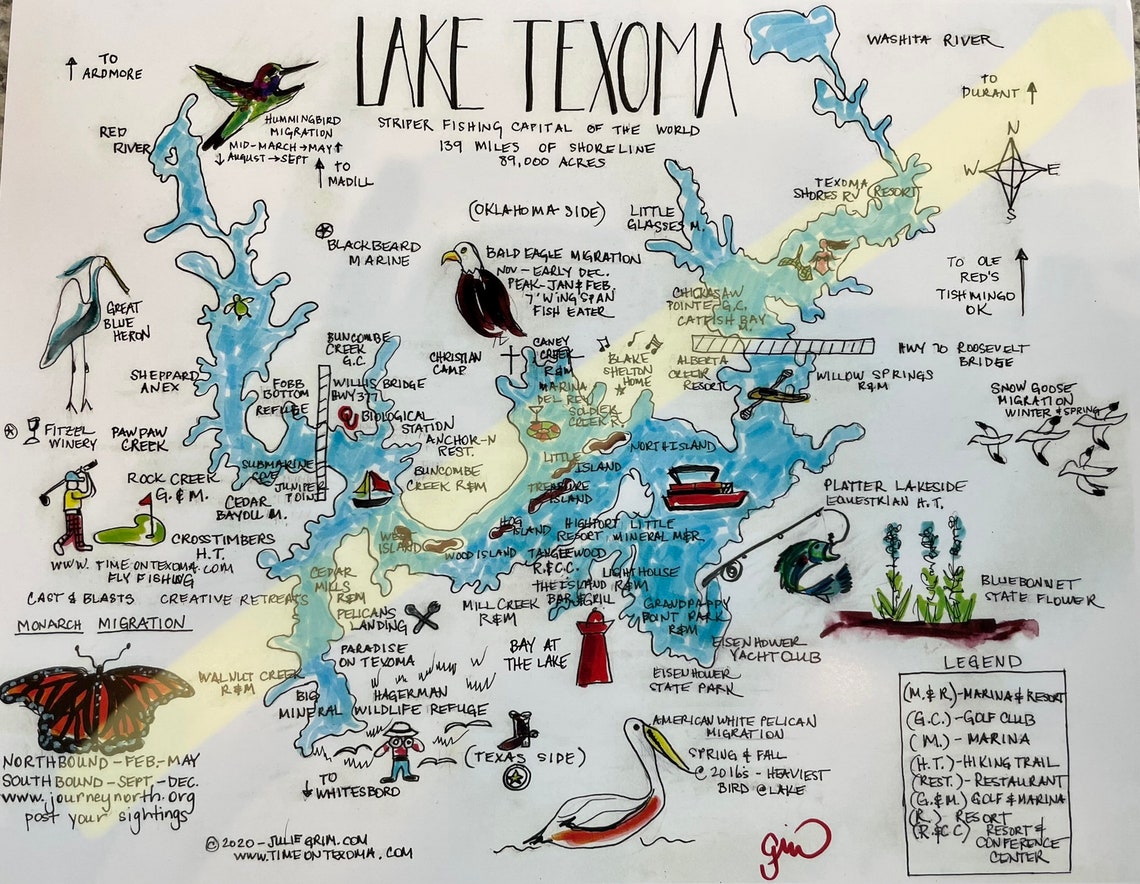 LAKE TEXOMA
STRIPER FISHING CAPITAL OF THE WORLD
139 MILES OF SHORELINE
89,000 ACRES
WASHITA RIVER
TO
DURANT
N
W E
S
TO
ARDMORE
RED
RIVER
HUMMINGBIRD
MIGRATION
MID-MARCH → MAY ↑
↓ AUGUST → SEPT
TO
MADILL
(OKLAHOMA SIDE)
LITTLE
GLASSES M.
TEXOMA
SHORES RV (RESORT
BLACKBEARD
MARINE
BALD EAGLE MIGRATION
NOV - EARLY DEC.
PEAK - JAN & FEB.
7' WING SPAN
FISH EATER
TO OLE
RED'S
TISHMINGO
OK
CHICKASAW
POINTE G.C.
CATFISH BAY
M.
GREAT
BLUE
HERON
BUNCOMBE
CREEK
G.C.
CHRISTIAN
CAMP
CANEY
CREEK
R&M
MARINA
DEL REY
SOLDIER
CREEK R.
BLAKE
SHELTON
HOME
ALBERTA
CREEK
RESORT
HWY 70 ROOSEVELT
BRIDGE
WILLOW SPRINGS
R&M
SNOW GOOSE
MIGRATION
WINTER & SPRING
SHEPPARD
ANEX
FOBB
BOTTOM
REFUGE
WILLIS BRIDGE
HWY 377
BIOLOGICAL
STATION
ANCHOR-N
REST.
BUNCOMBE
CREEK R&M
FITZEL
WINERY
PAW PAW
CREEK
ROCK CREEK
G. & M.
SUBMARINE
COVE
JUNIPER
POINT
CEDAR
BAYOU M.
CROSSTIMBERS
H.T.
NORTH ISLAND
LITTLE
ISLAND
TREASURE
ISLAND
HOG
ISLAND
WOOD ISLAND
WEST
ISLAND
HIGHPORT
RESORT
LITTLE
MINERAL M&R
TANGLEWOOD
R.&C.C.
THE ISLAND
BAR & GRILL
LIGHTHOUSE
R&M
GRANDPAPPY
POINT PARK
R&M
PLATTER LAKESIDE
EQUESTRIAN H.T.
BLUEBONNET
STATE FLOWER
WWW.TIMEONTEXOMA.COM
FLY FISHING
CAST & BLASTS CREATIVE RETREATS
CEDAR
MILLS
R&M
PELICANS
LANDING
MILL CREEK
R&M
BAY AT
THE LAKE
EISENHOWER
YACHT CLUB
EISENHOWER
STATE PARK
MONARCH MIGRATION
WALNUT CREEK
R&M
PARADISE
ON TEXOMA
BIG
MINERAL
HAGERMAN
WILDLIFE REFUGE
(TEXAS SIDE)
TO
WHITESBORD
NORTHBOUND - FEB.-MAY
SOUTHBOUND - SEPT.-DEC.
www.journeynorth.org
post your sightings
AMERICAN WHITE PELICAN
MIGRATION
SPRING & FALL
@ 20 16's - HEAVIEST
BIRD @ LAKE
LEGEND
(M.&R.) - MARINA & RESORT
(G.C.) - GOLF CLUB
(M.) - MARINA
(H.T.) - HIKING TRAIL
(REST.) - RESTAURANT
(G.&M.) GOLF & MARINA
(R.) RESORT
(R.&C.C.) RESORT &
CONFERENCE
CENTER
© 2020 - JULIEGRIM.COM
WWW.TIMEONTEXOMA.COM